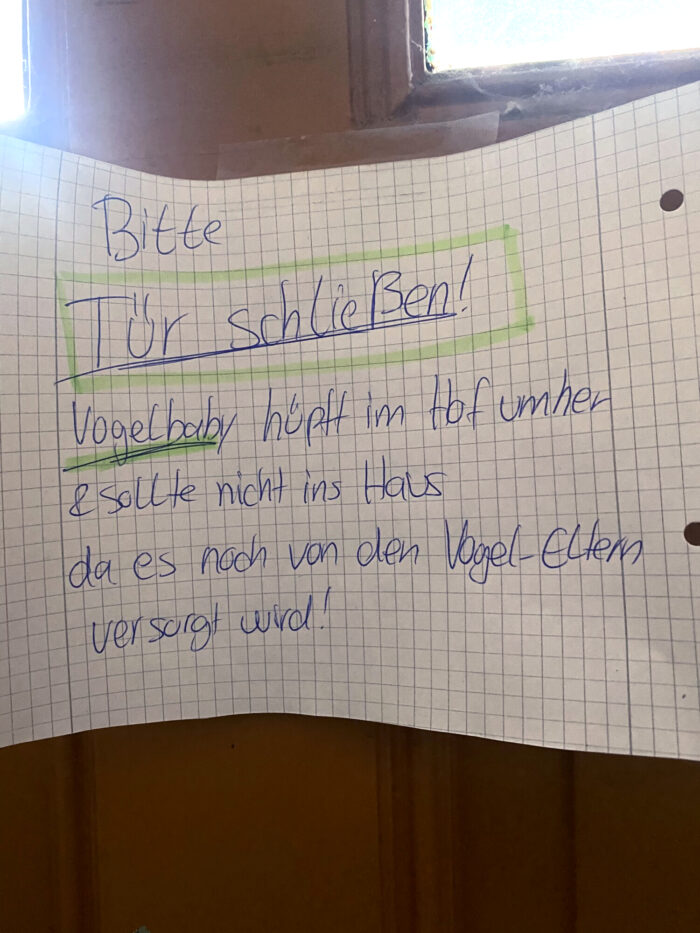 Bitte
Tür schließen!
Vogelbaby hüpft im Hof umher
& sollte nicht ins Haus
da es noch von den Vogel-Eltern
versorgt wird!